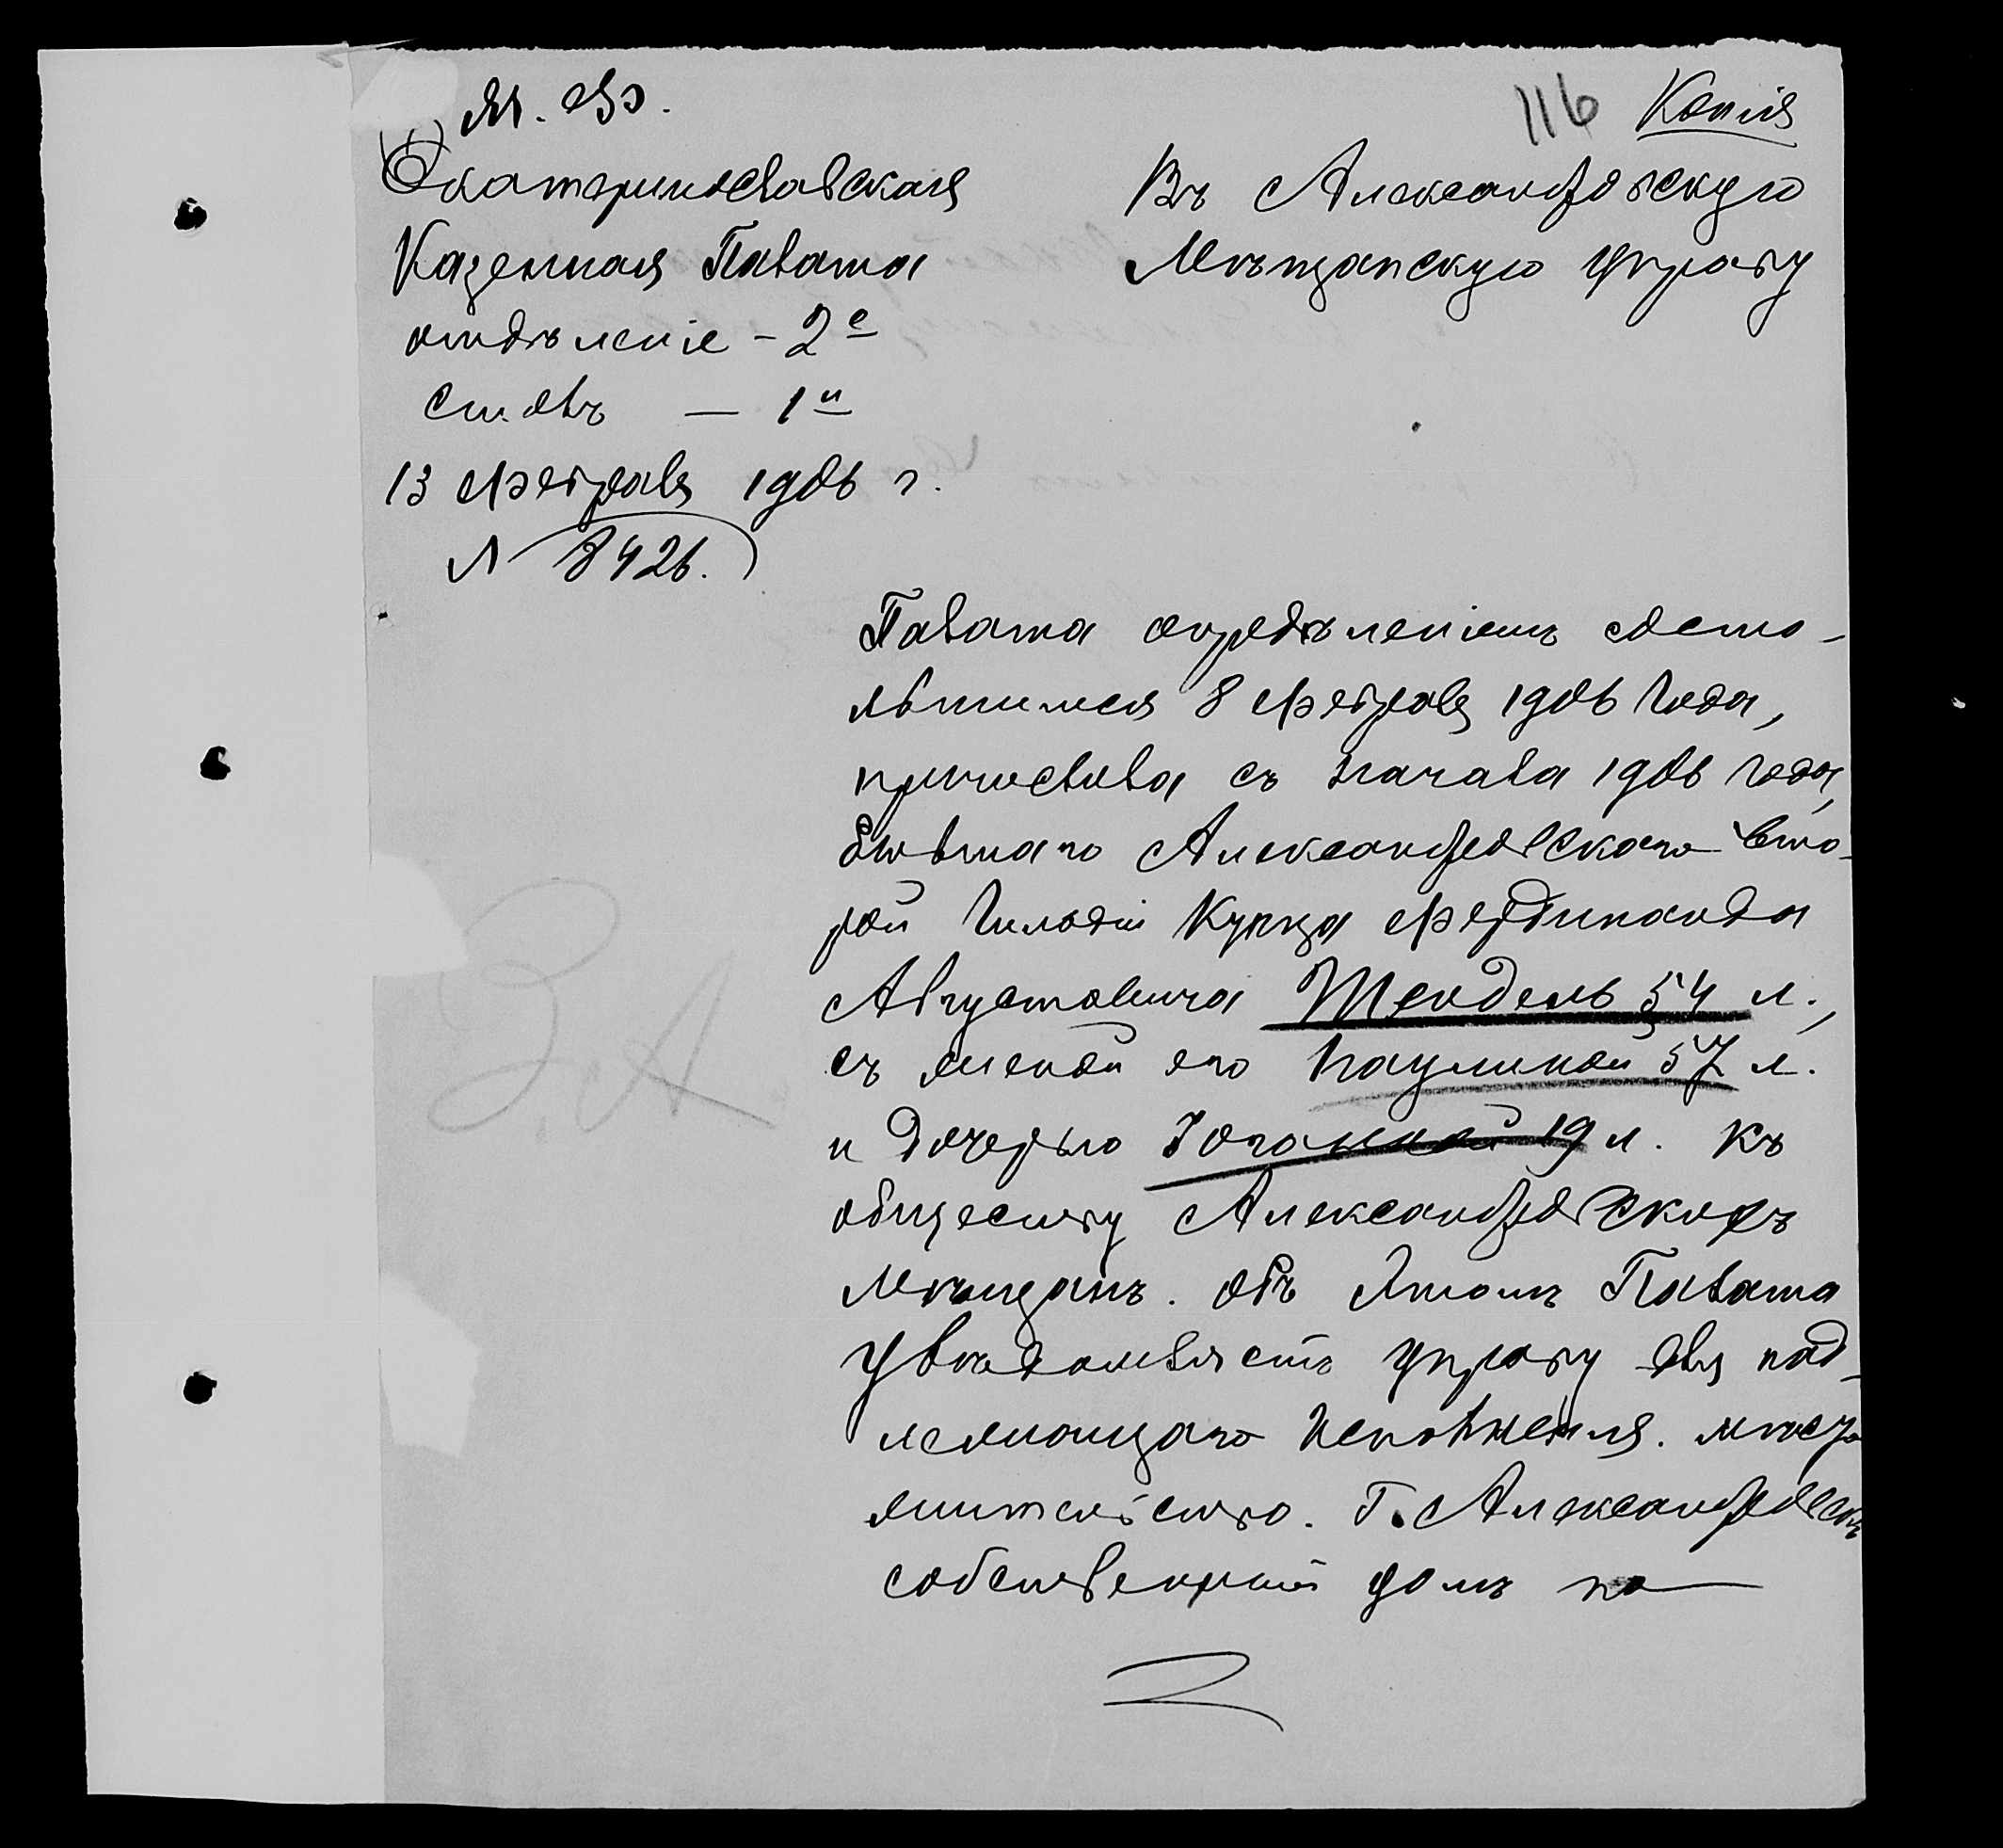 М. Ф.
116 Копія
Екатеринославская
Казенная Палата
отдѣленіе - 2е
столъ — 1й
13 февраля 1906 г.
N 8426.
Въ Александровскую
Мѣщанскую Управу
Палата опредѣленіемъ состо-
явшимся 8 февраля 1906 года,
причислила съ начала 1906 года,
бывшаго Александровскаго вто-
рой Гильдіи Купца Фердинанда
Августовича Тендель 54 л.,
съ женой его Паулиной 57 л.
и дочерью Іоганной 19 л. къ
обществу Александровскихъ
Мѣщанъ. Объ этомъ Палата
увѣдомляетъ Управу для над-
лежащаго исполненія. мѣсто
жительство. Г. Александровскъ
собственный домъ по
ЗА